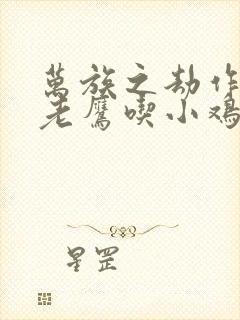 萬族之劫作
老鷹喫小鷄
星罡